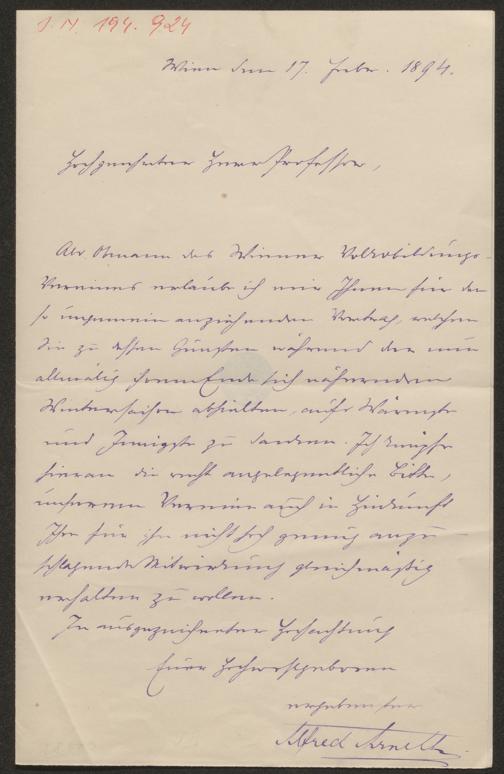 J.N. 194.924
Wien den 17. Febr. 1894.
Hochgeehrter Herr Professor,
Als Obmann des Wiener Volksbildungs-
Vereines erlaube ich mir Ihnen für den
so ungemein anziehenden Vortrag, welchen
Sie zu dessen Gunsten während der nun
allmälig ihrem Ende sich nähernden
Wintersaison abhielten, aufs Wärmste
und Innigste zu danken. Ich knüpfe
hieran die recht angelegentliche Bitte,
unserem Vereine auch in Hinkunft
Ihre für ihn nicht hoch genug anzu
schlagende Mitwirkung gleichmäßig
erhalten zu wollen.
In ausgezeichneter Hochachtung
Euer Hochwohlgeboren
ergebenster
Alfred Arneth